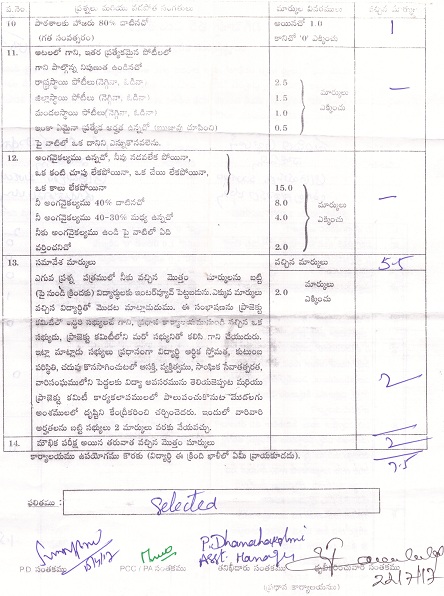 వ.నెం. ప్రశ్నలు మరియు మార్కుల వివరములు
10 పాఠశాలకు హాజరు 80% దాటినచో అయినచో 1.0 1
(గత సంవత్సరం) కానిచో '0' ఎక్కించు
11. ఆటలలో గాని, ఇతర ప్రత్యేకమైన పోటీలలో
గాని పాల్గొన్న నిపుణుత ఉండినచో
రాష్ట్రస్థాయి పోటీలు(నెగ్గినా, ఓడినా) 2.5
జిల్లాస్థాయి పోటీలు (నెగ్గినా, ఓడినా) 1.5 మార్కులు —
మండలస్థాయి పోటీలు(నెగ్గినా, ఓడినా) 1.0 ఎక్కించు
ఇంకా ఏమైనా ప్రత్యేక అర్హత ఉన్నచో 0.5
పై వాటిలో ఒక దానిని ఎన్నుకొనవలెను.
12. అంగవైకల్యము ఉన్నచో, నీవు నడవలేక పోయినా,
ఒక కంటి చూపు లేకపోయినా, ఒక చేయి లేకపోయినా,
ఒక కాలు లేకపోయినా 15.0
నీ అంగవైకల్యము 40% దాటినచో 8.0 మార్కులు —
నీ అంగవైకల్యము 40-30% మధ్య ఉన్నచో 4.0 ఎక్కించు
నీకు అంగవైకల్యము ఉండి పై వాటిలో ఏది
వర్తించనిచో 2.0
13. సమావేశ మార్కులు వచ్చిన మార్కులు 5.5
ఎగువ ప్రశ్న పత్రములో నీకు వచ్చిన మొత్తం మార్కులను బట్టి
(పై నుండి క్రిందకు) విద్యార్థులకు ఇంటర్వ్యూన్ పెట్టబడును.ఎక్కువ మార్కులు 2.0 మార్కులు
వచ్చిన విద్యార్థితో మొదట మాట్లాడుదుము. ఈ సంభాషణను ప్రాజెక్టు ఎక్కించు
కమిటీలో ఎవ్వరి సభ్యులచే గాని, ప్రధాన కార్యాలయమునుండి వచ్చిన ఒక
సభ్యుడు, ప్రాజెక్టు కమిటీలోని మరో సభ్యునితో కలిసి గాని చేయుదురు.
ఇట్లా మాట్లాడు సభ్యులు ప్రధానంగా విద్యార్థి ఆర్థిక స్తోమత, కుటుంబ
పరిస్థితి, చదువు కొనసాగించుటలో ఆసక్తి, వ్యక్తిత్వము, సాంఘిక సేవాతత్పరత,
వారిసంఘములోని పెద్దలకు విద్యా అవసరమును తెలియజెప్పుట మరియు 2
ప్రాజెక్టు కమిటీ కార్యకలాపములలో పాలుపంచుకొనుట మొదలగు
అంశములలో దృష్టిని కేంద్రీకరించి చర్చించెదరు. ఇందులో వారివారి
అర్హతలను బట్టి సభ్యులు 2 మార్కులు వరకు వేయవచ్చు.
14. మౌఖిక పరీక్ష అయిన తరువాత వచ్చిన మొత్తం మార్కులు 2
కార్యాలయము ఉపయోగము కొరకు (విద్యార్థి ఈ క్రింది ఖాళీలో ఏమీ వ్రాయకూడదు). 7.5
ఫలితము : Selected
P. Dhanalakshmi
Asst. Manager
PD సంతకము PCC / PA సంతకము తనిఖీదారు సంతకము ధృవీకరించువారి సంతకము
22/7/17
(ప్రధాన కార్యాలయము)